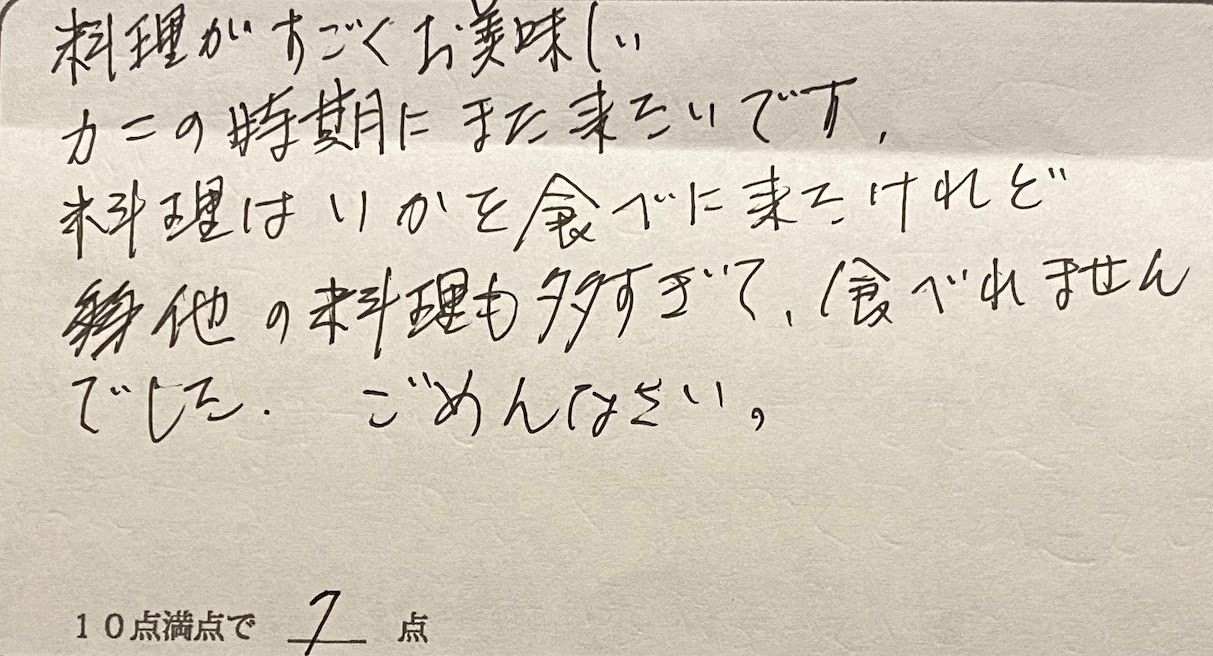 料理がすごくお美味しい
カニの時期にまた来たいです。
料理はいかを食べに来たけれど
他の料理も多すぎて、食べれません
でした. ごめんなさい。
10点満点で 7 点